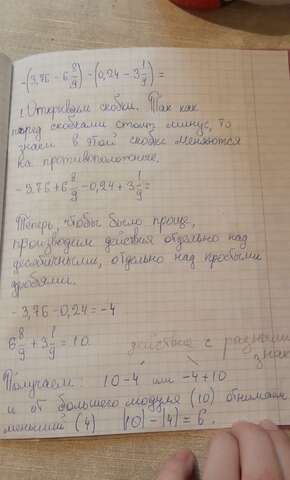 -(3,76 - 6 8/9) - (0,24 - 3 1/9) =
1. Открываем скобки. Так как
перед скобками стоит минус, то
знаки в этой скобке меняются
на противоположные.
-3,76 + 6 8/9 - 0,24 + 3 1/9 =
Теперь, чтобы было проще,
производим действия отдельно над
десятичными, отдельно над
дробями.
-3,76 - 0,24 = -4
6 8/9 + 3 1/9 = 10
действие с разными
знак
Получаем: 10 - 4 или -4 + 10
и от большего модуля (10) отнимаем
меньший (4) |10| - |4| = 6.